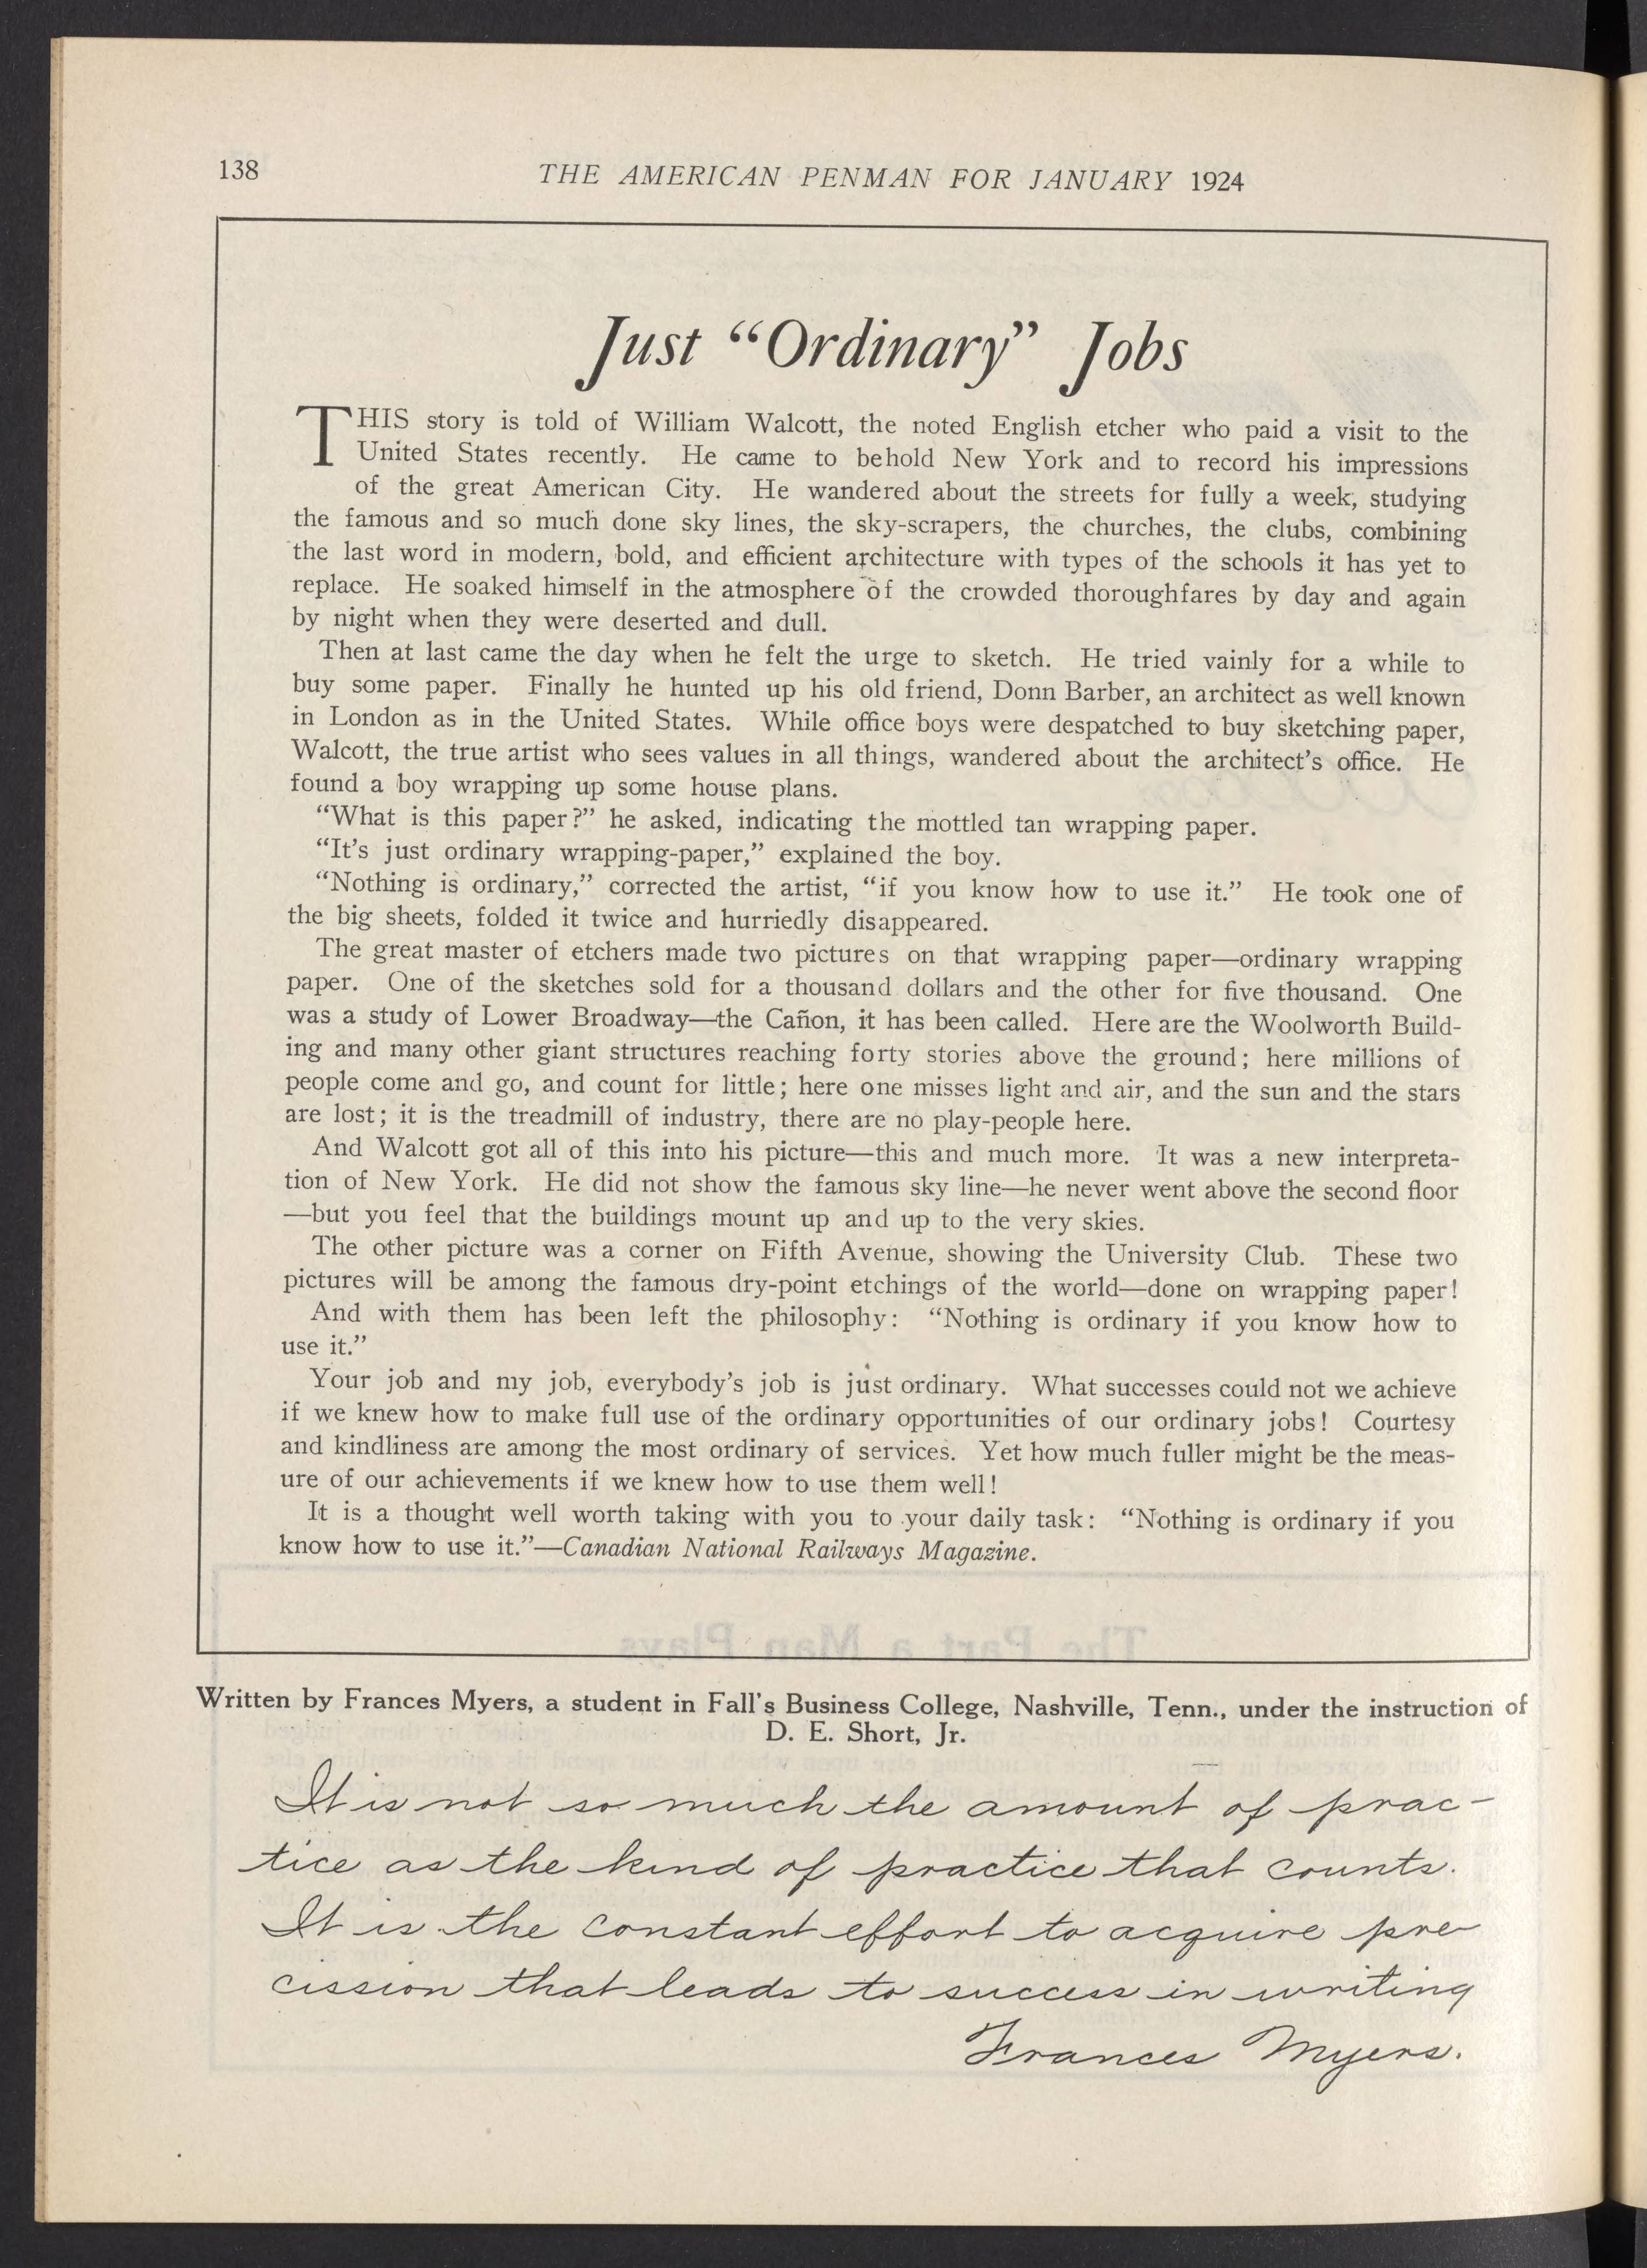 138
THE AMERICAN PENMAN FOR JANUARY 1924
Just “Ordinary” Jobs
THIS story is told of William Walcott, the noted English etcher who paid a visit to the
United States recently. He came to behold New York and to record his impressions
of the great American City. He wandered about the streets for fully a week, studying
the famous and so much done sky lines, the sky-scrapers, the churches, the clubs, combining
the last word in modern, bold, and efficient architecture with types of the schools it has yet to
replace. He soaked himself in the atmosphere of the crowded thoroughfares by day and again
by night when they were deserted and dull.
Then at last came the day when he felt the urge to sketch. He tried vainly for a while to
buy some paper. Finally he hunted up his old friend, Donn Barber, an architect as well known
in London as in the United States. While office boys were despatched to buy sketching paper,
Walcott, the true artist who sees values in all things, wandered about the architect’s office. He
found a boy wrapping up some house plans.
“What is this paper?” he asked, indicating the mottled tan wrapping paper.
“It’s just ordinary wrapping-paper,” explained the boy.
“Nothing is ordinary,” corrected the artist, “if you know how to use it.” He took one of
the big sheets, folded it twice and hurriedly disappeared.
The great master of etchers made two pictures on that wrapping paper—ordinary wrapping
paper. One of the sketches sold for a thousand dollars and the other for five thousand. One
was a study of Lower Broadway—the Cañon, it has been called. Here are the Woolworth Build-
ing and many other giant structures reaching forty stories above the ground; here millions of
people come and go, and count for little; here one misses light and air, and the sun and the stars
are lost; it is the treadmill of industry, there are no play-people here.
And Walcott got all of this into his picture—this and much more. It was a new interpreta-
tion of New York. He did not show the famous sky line—he never went above the second floor
—but you feel that the buildings mount up and up to the very skies.
The other picture was a corner on Fifth Avenue, showing the University Club. These two
pictures will be among the famous dry-point etchings of the world—done on wrapping paper!
And with them has been left the philosophy: “Nothing is ordinary if you know how to
use it.”
Your job and my job, everybody’s job is just ordinary. What successes could not we achieve
if we knew how to make full use of the ordinary opportunities of our ordinary jobs! Courtesy
and kindliness are among the most ordinary of services. Yet how much fuller might be the meas-
ure of our achievements if we knew how to use them well!
It is a thought well worth taking with you to your daily task: “Nothing is ordinary if you
know how to use it.”—Canadian National Railways Magazine.
The Part a Man Plays
Written by Frances Myers, a student in Fall’s Business College, Nashville, Tenn., under the instruction of
D. E. Short, Jr.
It is not so much the amount of prac-
tice as the kind of practice that counts.
It is the constant effort to acquire pre-
cission that leads to success in writing
Frances Myers.